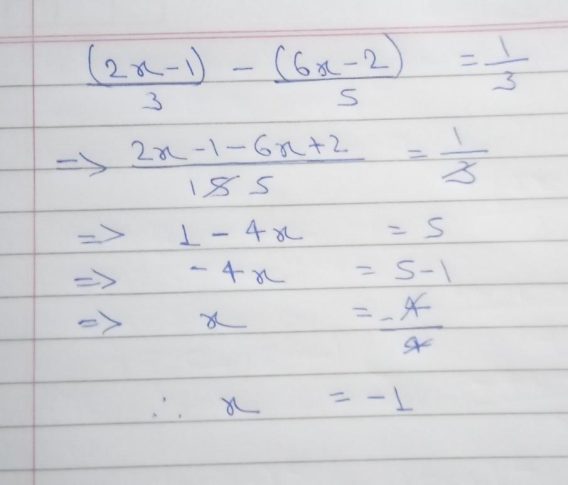 (2x-1)/3 - (6x-2)/5 = 1/3
=> (2x-1-6x+2)/15 5 = 1/3
=> 1-4x = 5
=> -4x = 5-1
=> x = -4/4
∴ x = -1